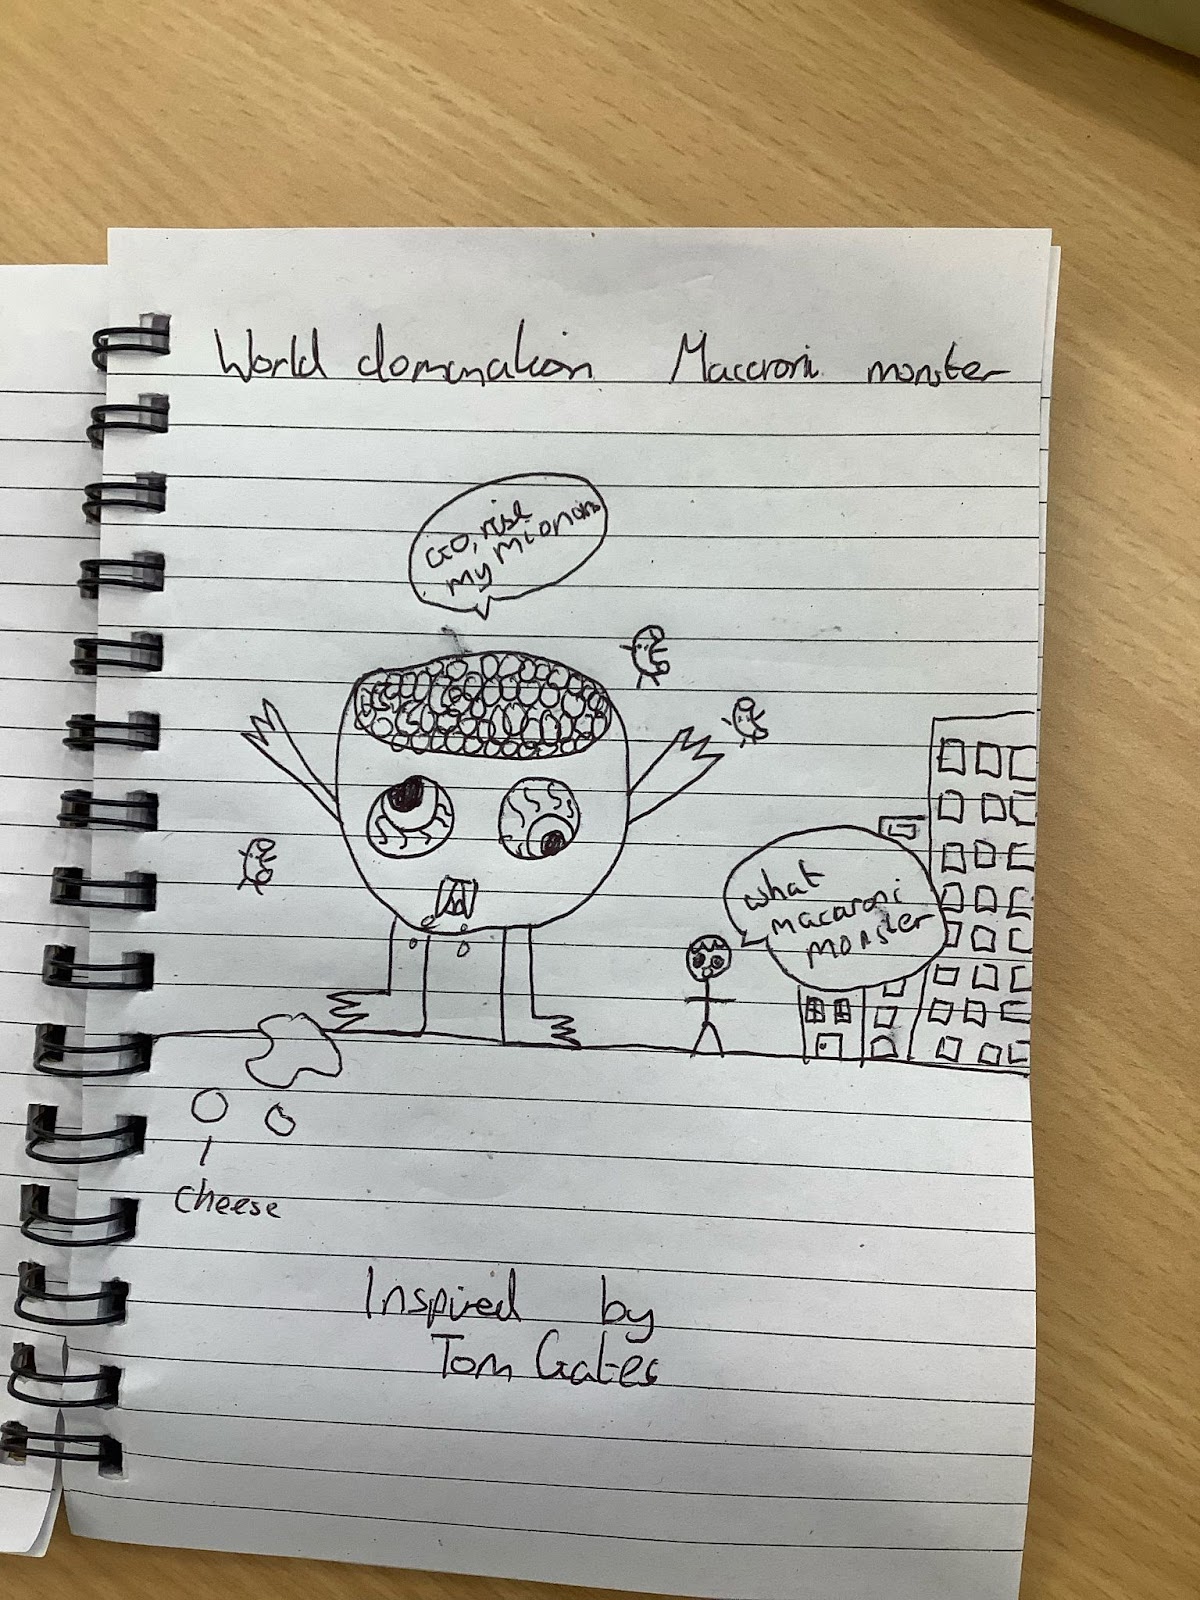 World domination Maccroni monster
GO, rise
my mionons
what
macaroni
monster
cheese
Inspired by
Tom Gates